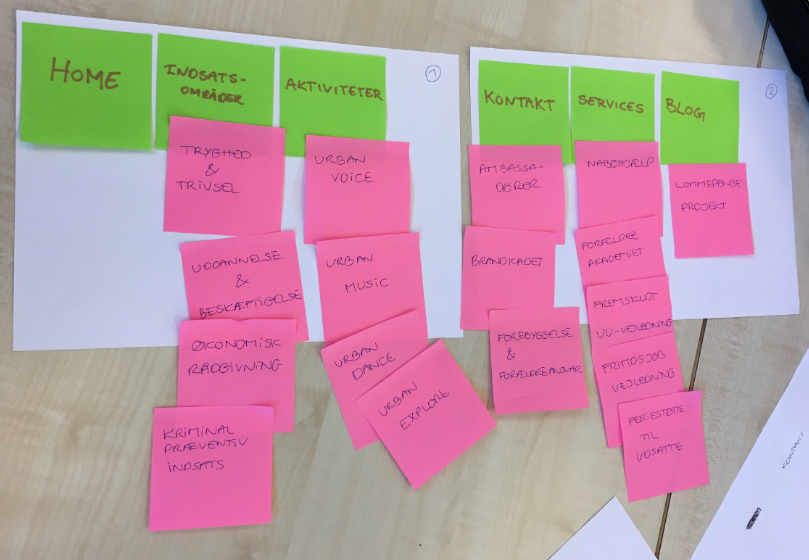 HOME
INDSATS-
OMRÅDER
AKTIVITETER
1
TRYGHED
&
TRIVSEL
UDDANNELSE
&
BESKÆFTIGELSE
ØKONOMISK
RÅDGIVNING
KRIMINAL
PRÆVENTIV
INDSATS
URBAN
VOICE
URBAN
MUSIC
URBAN
DANCE
URBAN
EXPLORE
KONTAKT
SERVICES
BLOG
2
AMBASSA-
DØRER
BRANDKADET
FOREBYGGELSE
&
FORÆLDREANSVAR
NABOHJÆLP
FORÆLDRE
AKADEMIET
FREMSKUDT
UU-VEJLEDNING
FRITIDSJOB
VEJLEDNING
FERIESTØTTE
TIL
UDSATTE
LOMMEPENGE
PROJEKT
KONTAKT